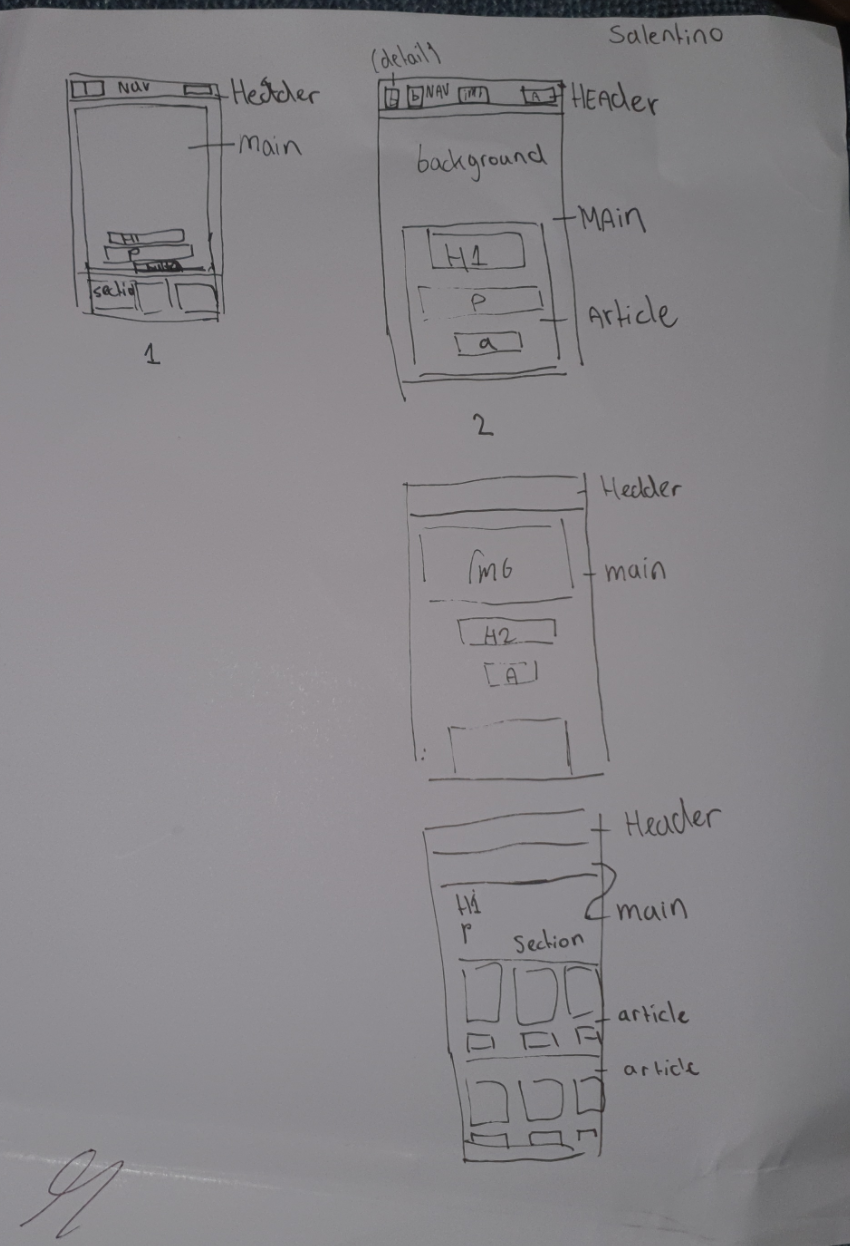 Salentino
(detail)
Nav
Header
Main
H1
P
section
1
b NAV IMG A
HEAder
background
MAin
H1
P
Article
a
2
Hedder
Img
main
H2
A
Header
H1
main
P
Section
article
article